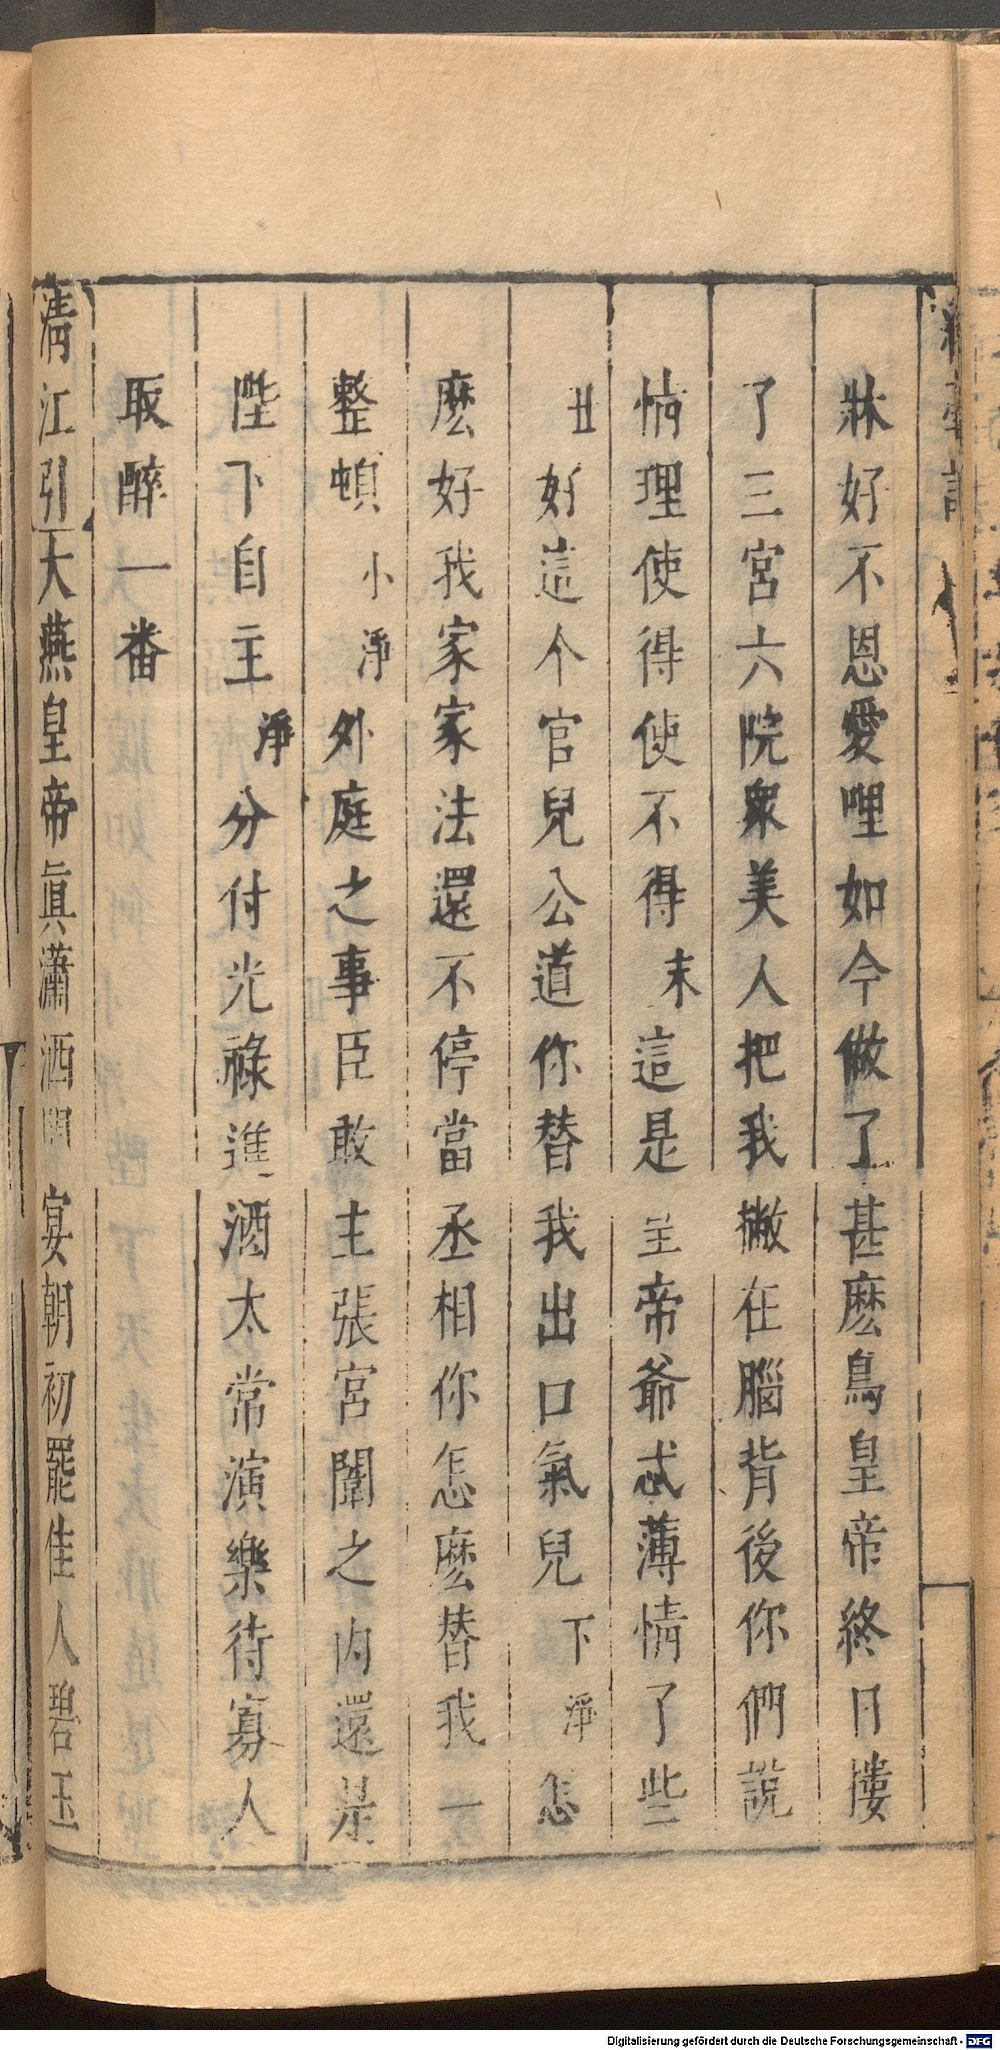 牀好不恩愛哩如今做了甚麽鳥皇帝終日摟
了三宮六院衆美人把我撇在腦背後你們說
情理使得使不得末這是主帝爺忒薄情了些
丑好這个官兒公道你替我出口氣兒下淨怎
麽好我家家法還不停當丞相你怎麽替我一
整頓小淨外庭之事臣敢主張宮闈之内還是
陛下自主淨分付光祿進酒太常演樂待寡人
取醉一番
清江引大燕皇帝眞瀟洒 宴朝初罷佳人碧玉
Digitalisierung gefördert durch die Deutsche Forschungsgemeinschaft - DFG